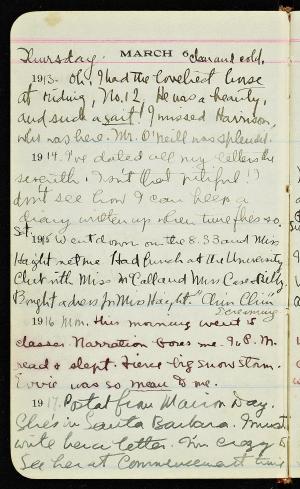 Thursday. MARCH 6 clear and cold.
1913. Oh, I had the loveliest horse
at riding, No. 12. He was a beauty,
and such a gait! I missed Harrison,
who was here. Mr. O'Neill was splendid.
1914. I've dated all my letters the
seventh. Isn't that pitiful! I
don't see how I can keep a
diary written up when time flies so.
Sat.
1915 Went down on the 8.33 and Miss
Haight met me. Had lunch at the University
Club with Miss McCall and Miss
Bought a dress for Miss Haight. "Chin Chin"
screaming
1916 Mon. This morning went to
classes. Narration bores me. To P.M.
read & slept. Fierce big snow storm.
was so mean to me.
1917. Postal from Marion Day.
She's in Santa Barbara. I must
write her a letter. I'm crazy to
see her at Commencement time